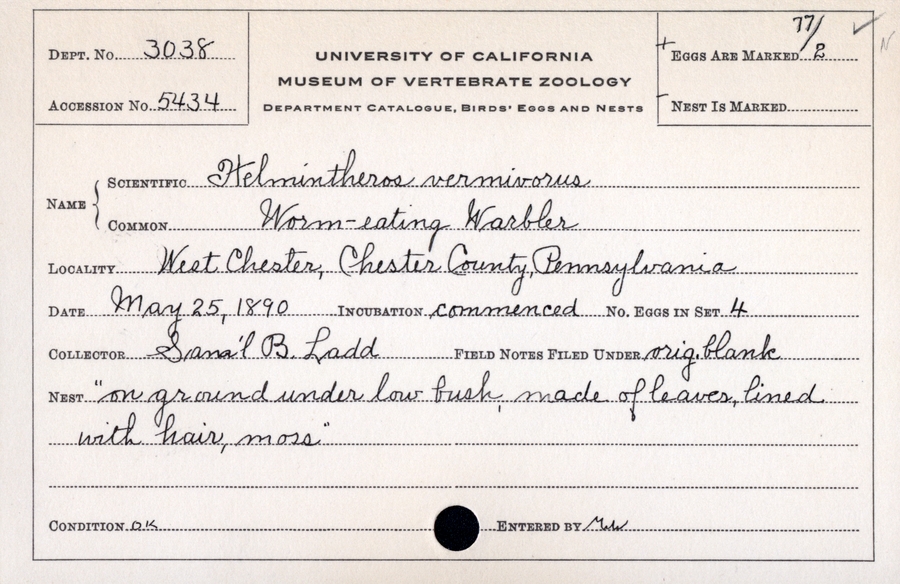 DEPT. NO. 3038
ACCESSION NO. 5434
UNIVERSITY OF CALIFORNIA
MUSEUM OF VERTEBRATE ZOOLOGY
DEPARTMENT CATALOGUE, BIRDS' EGGS AND NESTS
EGGS ARE MARKED 77/2
NEST IS MARKED
NAME
SCIENTIFIC Helmintheros vermivorus
COMMON Worm-eating Warbler
LOCALITY West Chester, Chester County, Pennsylvania
DATE May 25, 1890 INCUBATION commenced NO. EGGS IN SET 4
COLLECTOR Sam'l B. Ladd FIELD NOTES FILED UNDER orig. blank
NEST "on ground under low bush, made of leaves, lined
with hair, moss"
CONDITION OK ENTERED BY